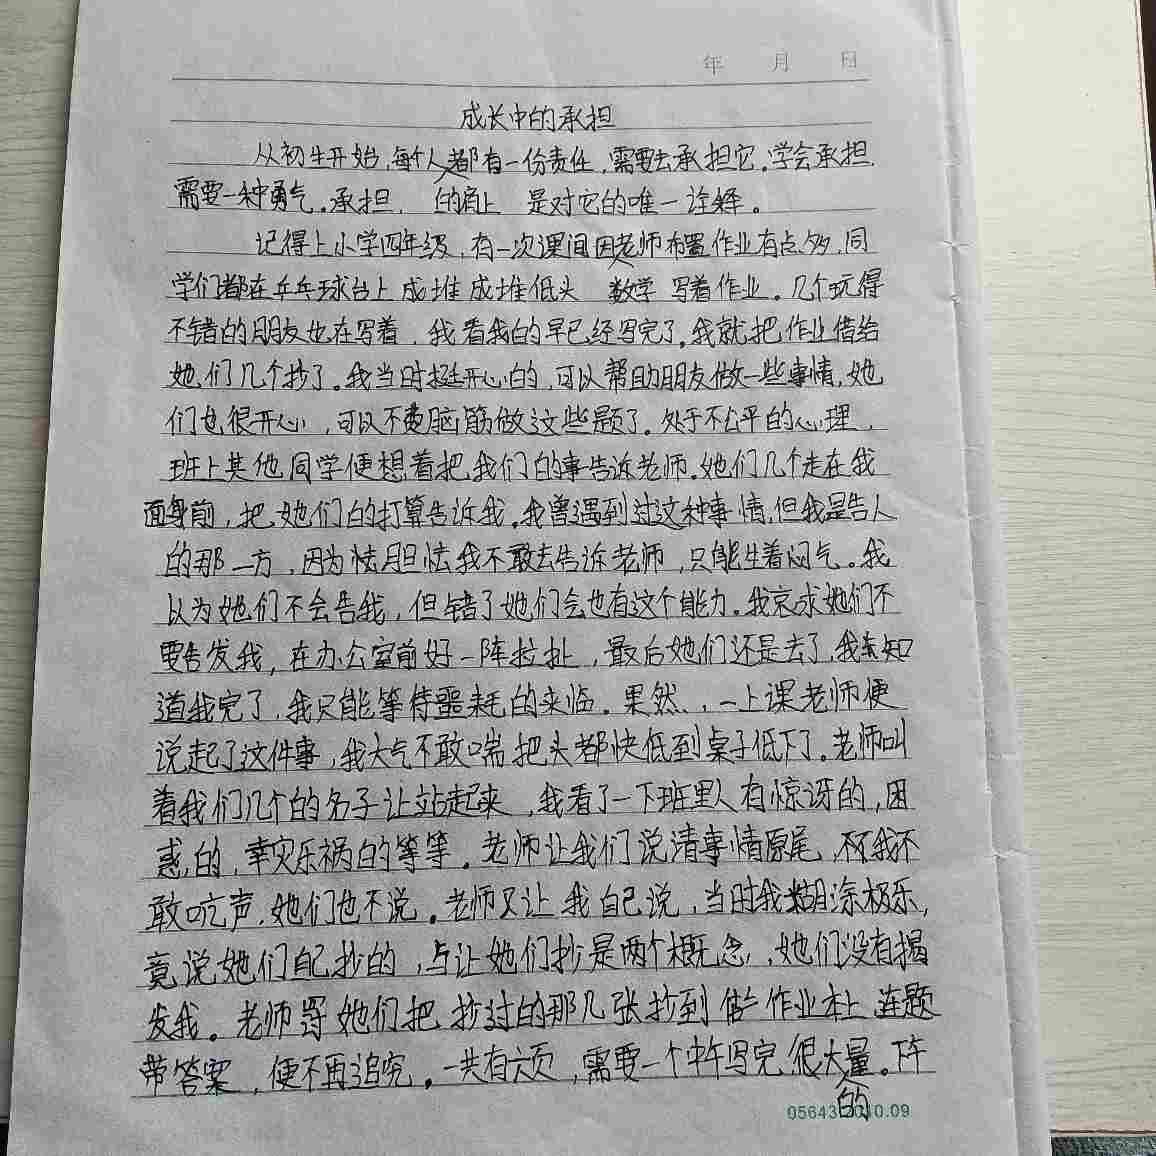 年 月 日
成长中的承担
从初生开始,每个人都有一份责任,需要去承担它。学会承担,
需要一种勇气。承担, 的肩上 是对它的唯一诠释。
记得上小学四年级,有一次课间因老师布置作业有点多,同
学们都在乒乓球台上成堆成堆低头 数学 写着作业。几个玩得
不错的朋友也在写着,我看我的早已经写完了。我就把作业借给
她们几个抄了。我当时挺开心的,可以帮助朋友做一些事情,她
们也很开心,可以不费脑筋做这些题了。处于不公平的心理,
班上其他同学便想着把我们的事告诉老师。她们几个走在我
面身前,把她们的打算告诉我。我曾遇到过这种事情,但我是告人
的那一方,因为怯胆怯我不敢去告诉老师,只能生着闷气。我
以为她们不会告我,但错了她们会也有这个能力。我哀求她们不
要告发我,在办公室前好一阵拉扯,最后她们还是去了,我知
道我完了,我只能等待噩耗的来临。果然,一上课老师便
说起了这件事,我大气不敢喘把头都快低到桌子低下了。老师叫
着我们几个的名字让站起来,我看了一下班里人有惊讶的,困
惑的,幸灾乐祸的等等。老师让我们说清事情原尾,我不
敢吭声,她们也不说。老师又让我自己说,当时我糊涂极乐,
竟说她们自己抄的,与让她们抄是两个概念,她们没有揭
发我。老师罚她们把抄过的那几张抄到 作业本上 连题
带答案,便不再追究。一共有六页,需要一个中午写完很大量。下午
的
05643 2010.09